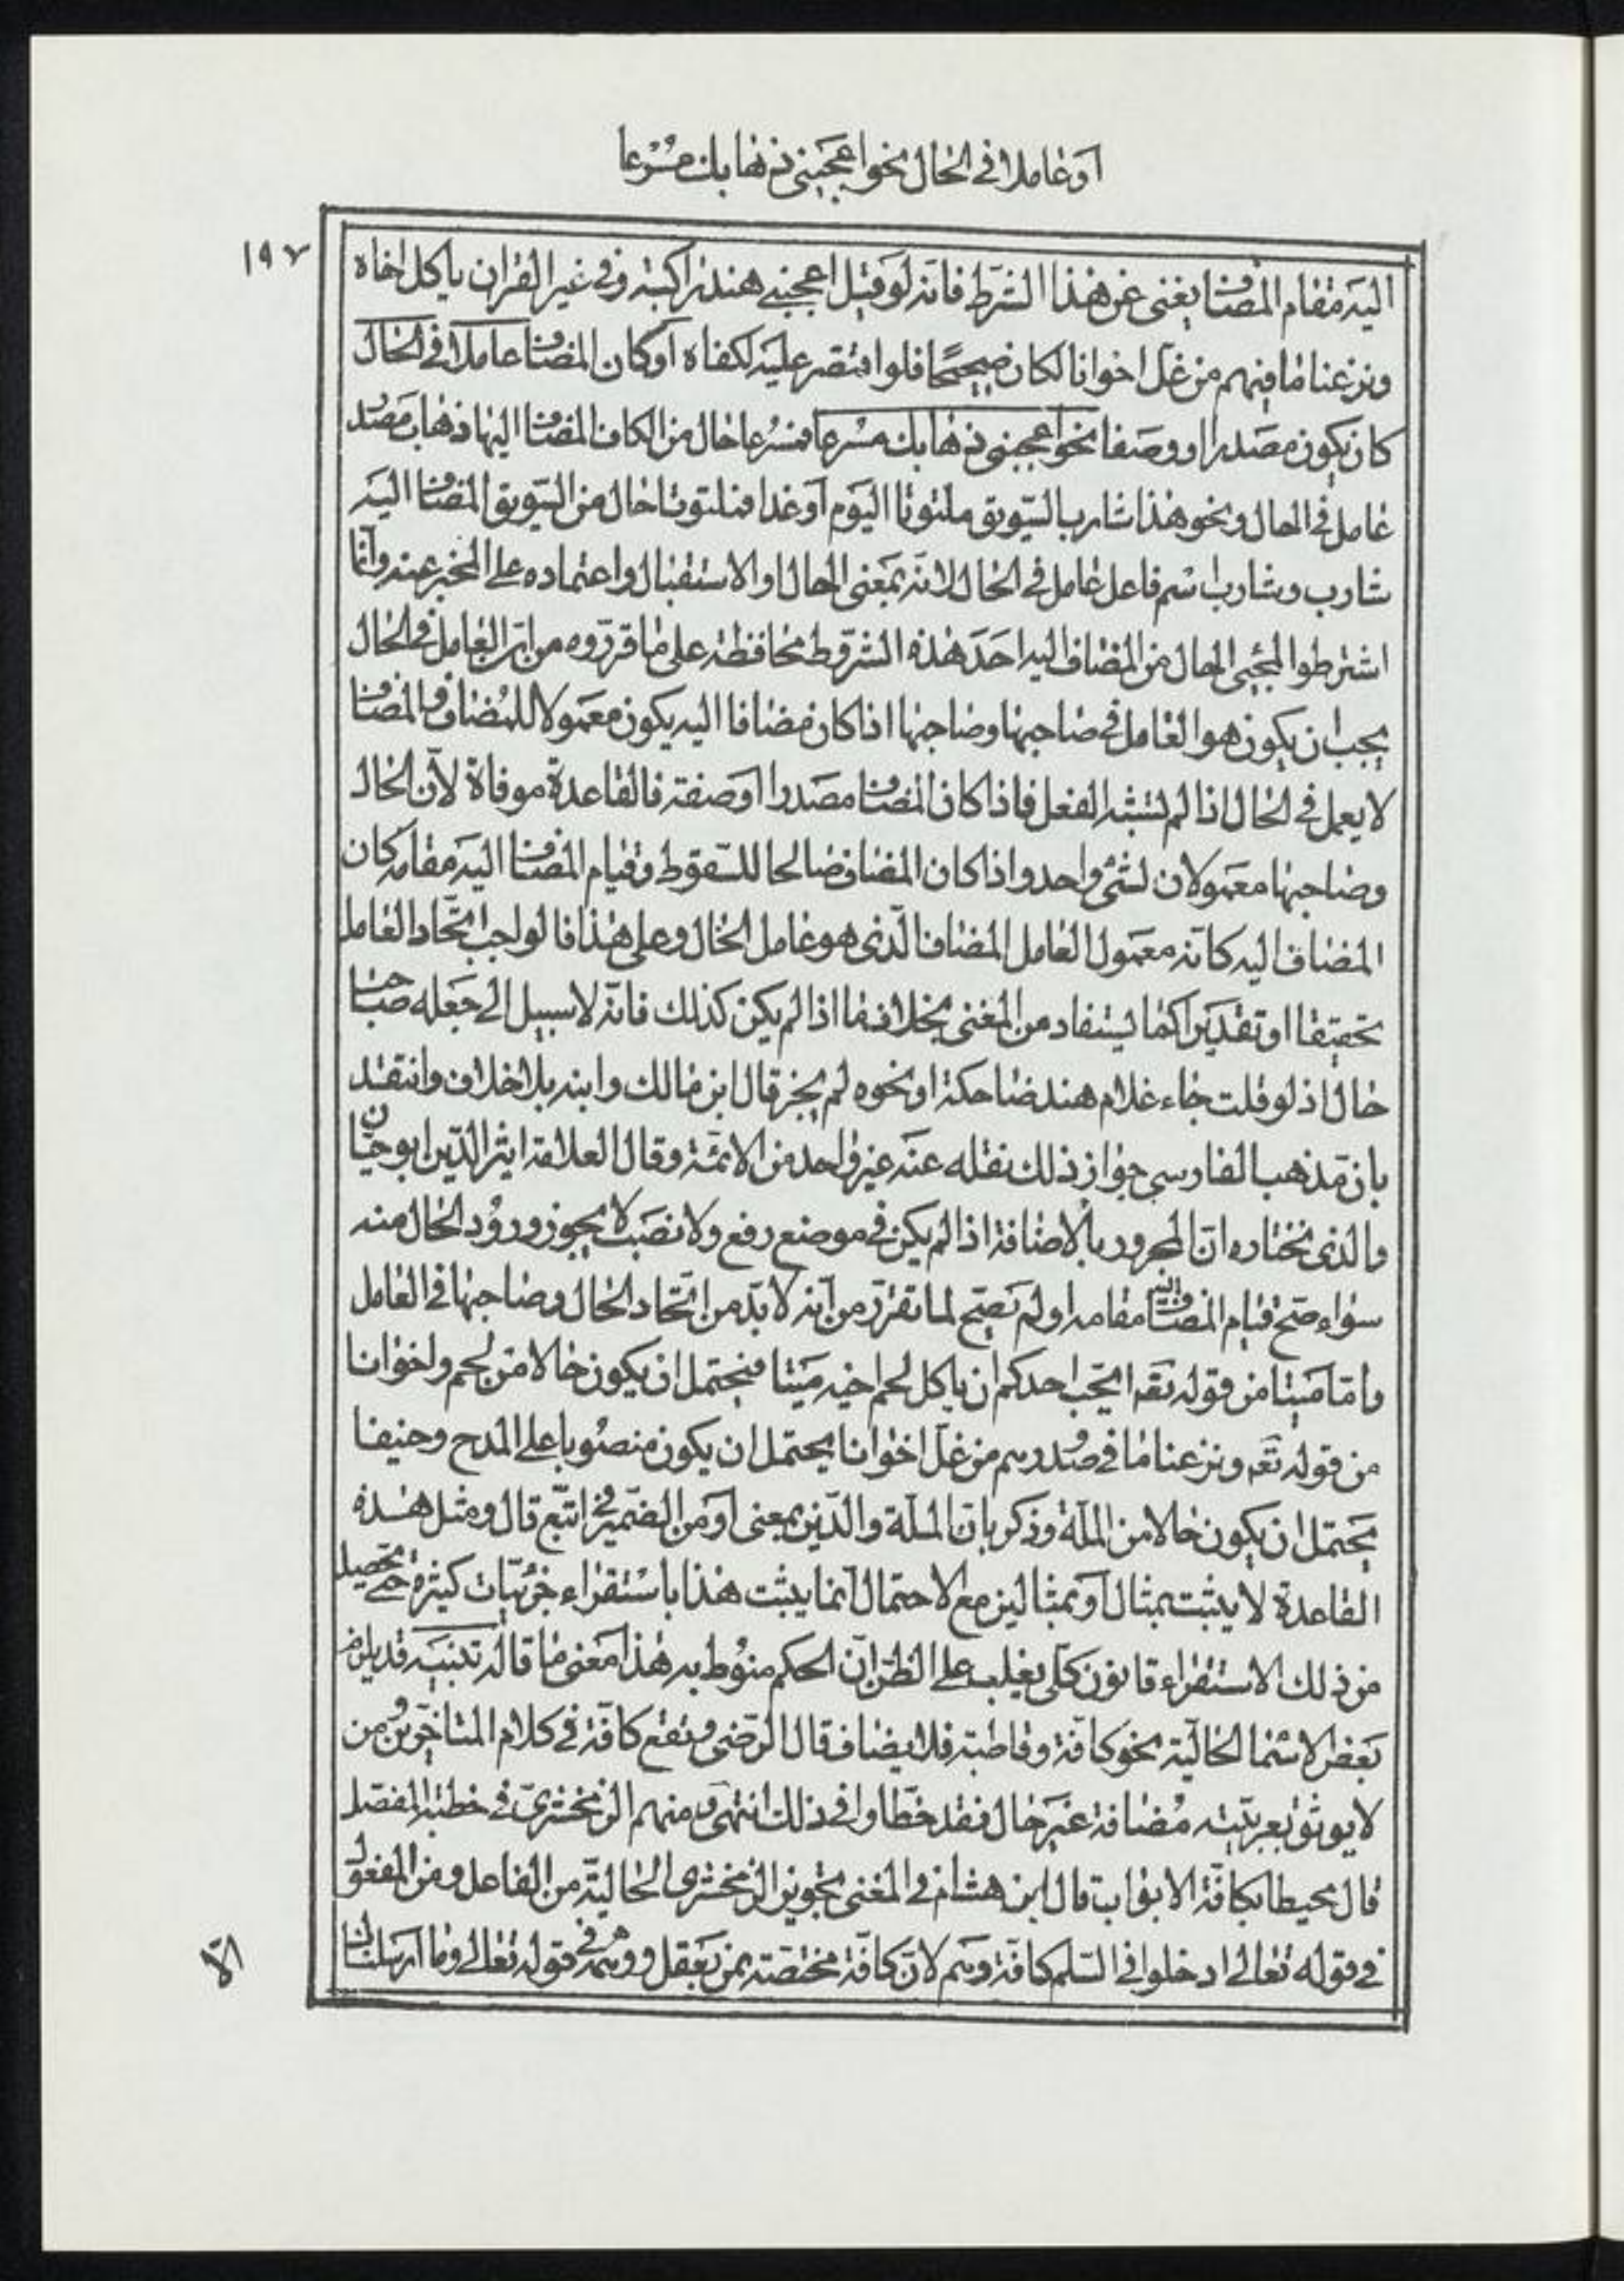 او عاملا في الحال نحو اعجبني ذهابك مسرعا
١٩٧
اليه مقام المضاف يغني عن هذا الشرط فانه لو قيل اعجبني هند راكبة وفي غير القران ياكل اخاه
ونزعنا ما فيهم من غل اخوانا لكان صحيحًا فلو اقتصر عليه لكفاه او كان المضاف عاملا في الحال
كان يكون مصدرا او وصفا نحو اعجبني ذهابك مسرعا فمسرعا حال من الكاف المضاف اليها ذهاب مصدر
عامل في الحال ونحو هذا شارب السّويق ملتوتا اليوم او غدا فملتوتا حال من السّويق المضاف اليه
شارب وشارب اسم فاعل عامل في الحال لانّه بمعنى الحال او الاستقبال واعتماده على المخبر عنه وانّما
اشترطوا لمجيئ الحال من المضاف اليه احد هذه الشروط محافظة على ما قرّروه من انّ العامل في الحال
يجب ان يكون هو العامل في صاحبها وصاحبها اذا كان مضافا اليه يكون معمولا للمضاف والمضاف
لا يعمل في الحال اذا لم يشبه الفعل فاذا كان المضاف مصدرا او صفة فالقاعدة موفاة لانّ الحال
وصاحبها معمولان لشئ واحد واذا كان المضاف صالحا للسّقوط وقيام المضاف اليه مقامه كان
المضاف اليه كانّه معمول العامل المضاف الّذي هو عامل الحال وعلى هذا فالواجب اتّحاد العامل
تحقيقا او تقديرا كما يستفاد من المغني بخلاف ما اذا لم يكن كذلك فانّه لا سبيل الى جعله صاحب
حال اذ لو قلت جاء غلام هند ضاحكة او نحوه لم يجز قال ابن مالك وابنه بلا خلاف وانتقد
بان مذهب الفارسي جواز ذلك نقله عنه غير واحد من الائمّة وقال العلامة اثير الدّين ابو حيّان
والذي نختاره انّ المجرور بالاضافة اذا لم يكن في موضع رفع ولا نصب لا يجوز ورود الحال منه
سواء صحّ قيام المضاف اليه مقامه او لم يصحّ لما تقرّر من انّه لا بدّ من اتّحاد الحال وصاحبها في العامل
وامّا ميتا من قوله تعه ايحبّ احدكم ان ياكل لحم اخيه ميتا فيحتمل ان يكون حالا من لحم واخوانا
من قوله تعه ونزعنا ما في صدورهم من غلّ اخوانا يحتمل ان يكون منصوبا على المدح وحنيفا
يحتمل ان يكون حالا من الملّة وذكر بانّ الملّة والدّين بمعنى او من الضّمير في اتّبع قال ومثل هذه
القاعدة لا يثبت بمثال او بمثالين مع الاحتمال انما يثبت هذا باستقراء جزئيّات كثيرة حتى تحصيل
من ذلك الاستقراء قانون كلّي يغلب على الظنّ انّ الحكم منوط به هذا معنى ما قاله تنبيه قد يلزم
بعض الاسما الحاليّة نحو كافّة وقاطبة فلا يضاف قال الرّضي وتقع كافّة في كلام المتاخّرين ومن
لا يوثق بعربيّته مضافة غير حال فقد خطّاوا في ذلك انتهى ومنهم الزمخشريّ في خطبة المفصّل
قال محيطا بكافّة الابواب قال ابن هشام في المغني تجويز الزمخشري الحالية من الفاعل ومن المفعول
في قوله تعالى ادخلوا في السّلم كافّة وهم لانّ كافّة مختصّة بمن يعقل ووهمه في قوله تعالى وما ارسلناك
الّا